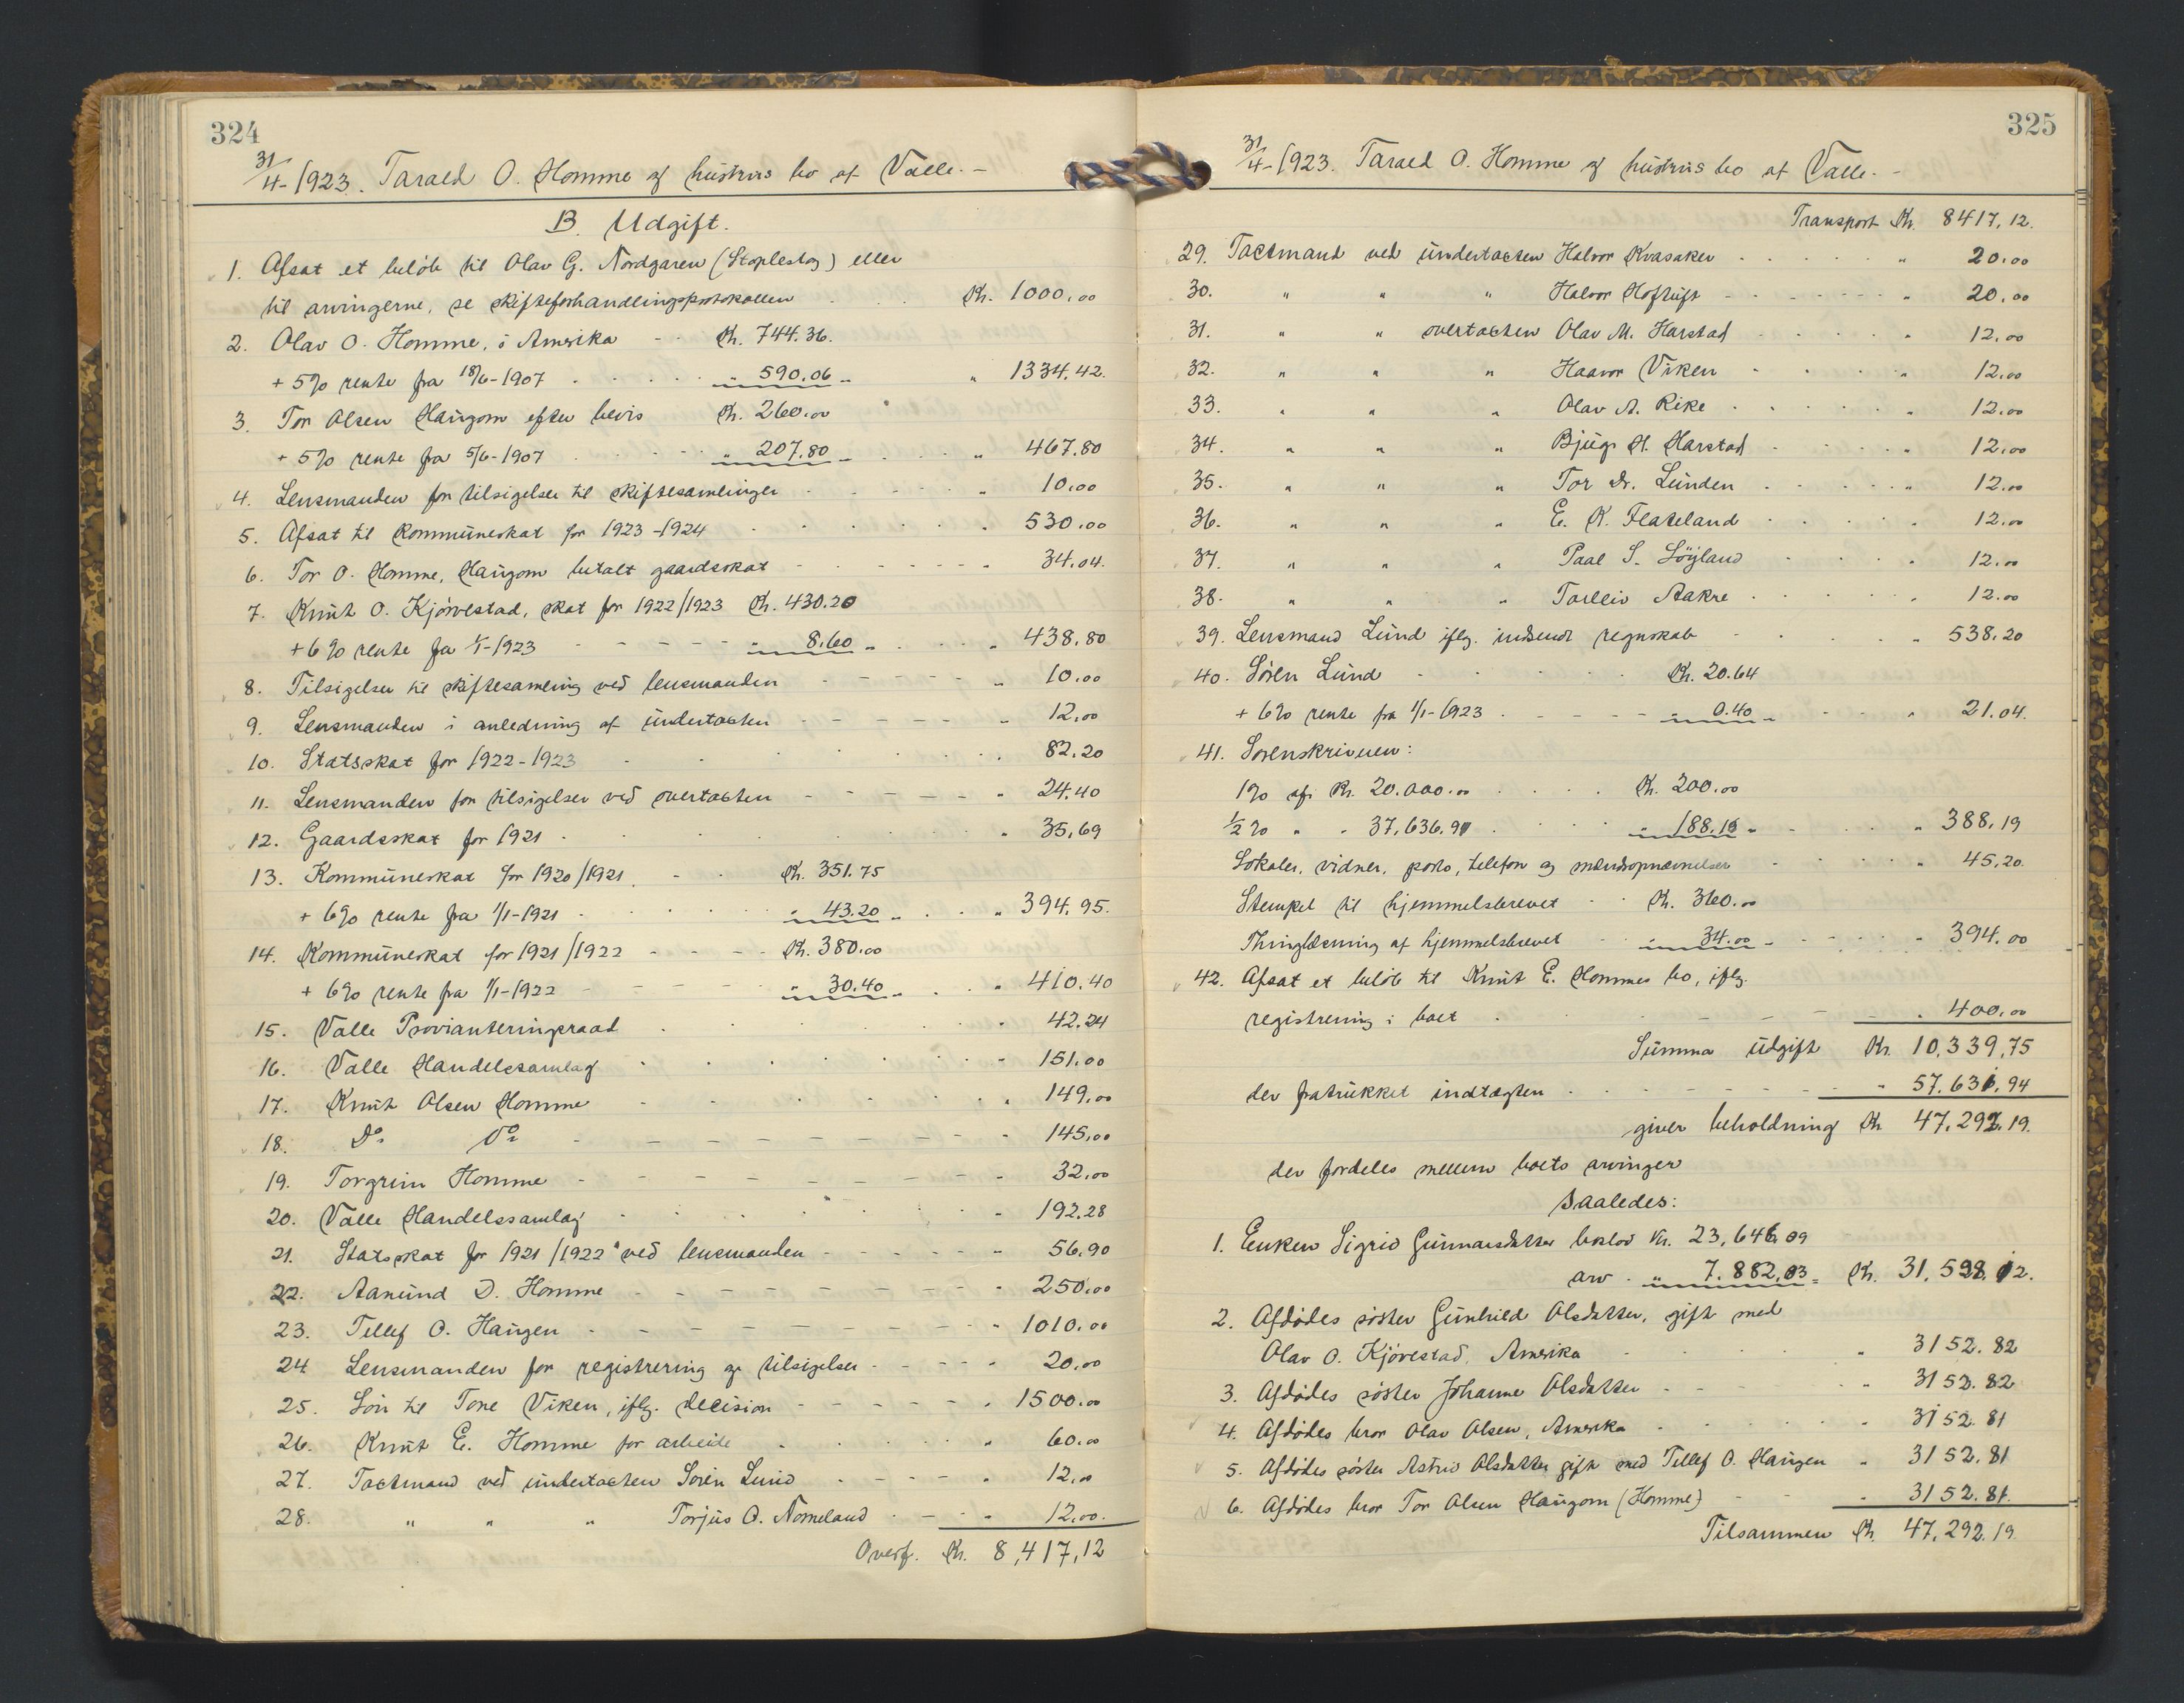 324
31/4-1923. Tarald O. Homme og hustrus bo af Valle.-
B. Udgift.
1. Afsat et beløb til Olav G. Nordgaren (Stoplestog) eller
til arvingerne, se skifteforhandlingsprotokollen . . . Kr. 1000.00
2. Olav O. Homme, i Amerika - - Kr. 744.36.
+ 5% rente fra 18/6-1907 . . . . . " 590.06 - " 1334.42.
3. Tor Olsen Haugom efter bevis Kr. 260.00
+ 5% rente fra 5/6-1907 . . . . . " 207.80 - . . . " 467.80
4. Lensmanden for tilsigelser til skiftesamlinger - - - - " 10.00
5. Afsat til kommuneskat for 1923-1924 . . . . . " 530.00
6. Tor O. Homme, Haugom betalt gaardsskat - - - - - " 34.04.
7. Knut O. Kjørvestad, skat for 1922/1923 Kr. 430.20
+ 6% rente fra 1/1-1923 - - - - - " 8.60 - . . . " 438.80
8. Tilsigelser til skiftesamling ved lensmanden - - - - - " 10.00
9. Lensmanden i anledning af undertakten - - - - - " 12.00
10. Statsskat for 1922-1923 . . . . . . 82.20
11. Lensmanden for tilsigelser ved overtakten - - - - - " 24.40
12. Gaardsskat for 1921 . . . . . . " 35.69
13. Kommuneskat for 1920/1921 . - - Kr. 351.75
+ 6% rente fra 1/1-1921 . . . . . " 43.20 - . . . " 394.95.
14. Kommuneskat for 1921/1922 - - - - Kr. 380.00
+ 6% rente fra 1/1-1922 - - - - " 30.40 - . . . " 410.40
15. Valle Provianteringsraad . . . . . . " 42.24
16. Valle Handelssamlag . . . . . . " 151.00
17. Knut Olsen Homme - - - - . . " 149.00
18. Do Do - - - - - - - - " 145.00
19. Torgrim Homme - - - - - - - - - " 32.00
20. Valle Handelssamlag . . . . . . " 192.28
21. Statsskat for 1921/1922 ved lensmanden - - - - - - " 56.90
22. Aanund D. Homme - - - - - - - - " 250.00
23. Tellef O. Haugen - - - - - - - - - " 1010.00
24 Lensmanden for registrering og tilsigelser - - - - " 20.00
25. Løn til Tone Viken, iflg. decision - - - - - - " 1500.00
26. Knut E. Homme for arbeide . . . . . " 60.00
27. Tactmand ved undertakten Søren Lund . - - - - " 12.00
28. " " " Torjus O. Nomeland . - - " 12.00.
Overf. Kr. 8,417,12
325
31/4-1923. Tarald O. Homme og hustrus bo af Valle. -
Transport Kr. 8417,12.
29. Tactmand ved undertakten Halvor Kvasaker . . . . . " 20.00
30. " " " Halvor Hoftuft - - - - - - " 20.00
31. " " overtakten Olav M. Harstad . . . . " 12.00
32. " " " Haavor Viken . . . . " 12.00
33. " " " Olav A. Rike . . . . . " 12.00
34. " " " Bjug H. Harstad . . . . " 12.00
35. " " " Tor Dr. Lunden . . . . " 12.00
36. " " " E. K. Flateland . . . . " 12.00
37. " " " Paal S. Løyland . . . . " 12.00
38. " " " Tarleiv Aakre . . . . . " 12.00
39. Lensmand Lund iflg. indsendt regnskab - . . . . " 538.20
40. Søren Lund - . . . . . Kr. 20.64
+ 6% rente fra 1/1-1923 . - - - - " 0.40 - - - - " 21.04.
41. Sorenskriveren:
1% af Kr. 20.000.00 . . . . Kr. 200.00
1/2% " " 37,636.94 . . . . . " 188.19 - - . . . " 388.19
Lokaler, vidner, porto, telefon og mændsopnævnelser - . . . . " 45.20.
Stempel til hjemmelsbrevet - - Kr. 360.00
Thinglæsning af hjemmelsbrevet - - " 34.00 - - - - - " 394.00
42. Afsat et beløb til Knut E. Hommes bo, iflg.
registrering i boet . . . . - - - - . 400.00
Summa udgift Kr. 10,339,75
der fratrukket indtægten . . . - - - - - " 57.631.94
giver beholdning Kr 47,292.19.
der fordeles mellem boets arvinger
saaledes:
1. Enken Sigrid Gunnarsdatter boslod Kr. 23,646.09
arv . " 7.882,03 = Kr. 31,528.12.
2. Afdødes søster Gunhild Olsdatter, gift med
Olav O. Kjørvestad, Amerika - . . . . " 3152.82
3. Afdødes søster Johanne Olsdatter - - - - - " 3152.82
4. Afdødes bror Olav Olsen, Amerika . - . . . " 3152.81
5. Afdødes søster Astrid Olsdatter gift med Tellef O. Haugen " 3152.81
6. Afdødes bror Tor Olsen Haugom (Homme) - - - " 3152.81.
Tilsammen Kr 47,292.19.